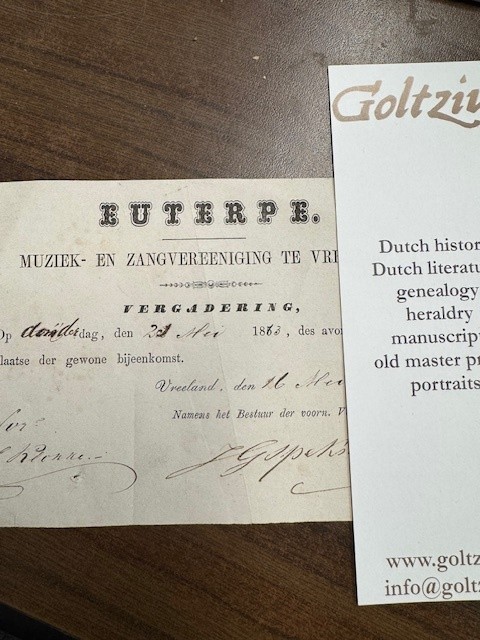 EUTERPE.
MUZIEK- EN ZANGVEREENIGING TE VRE
VERGADERING,
Op donderdag, den Mei 18 3, des avo
laatse der gewone bijeenkomst.
Vreeland, den 16 Mei
Namens het Bestuur der voorn. V
Goltziu
Dutch histor
Dutch literatu
genealogy
heraldry
manuscript
old master pr
portraits
www.goltz
info@goltz